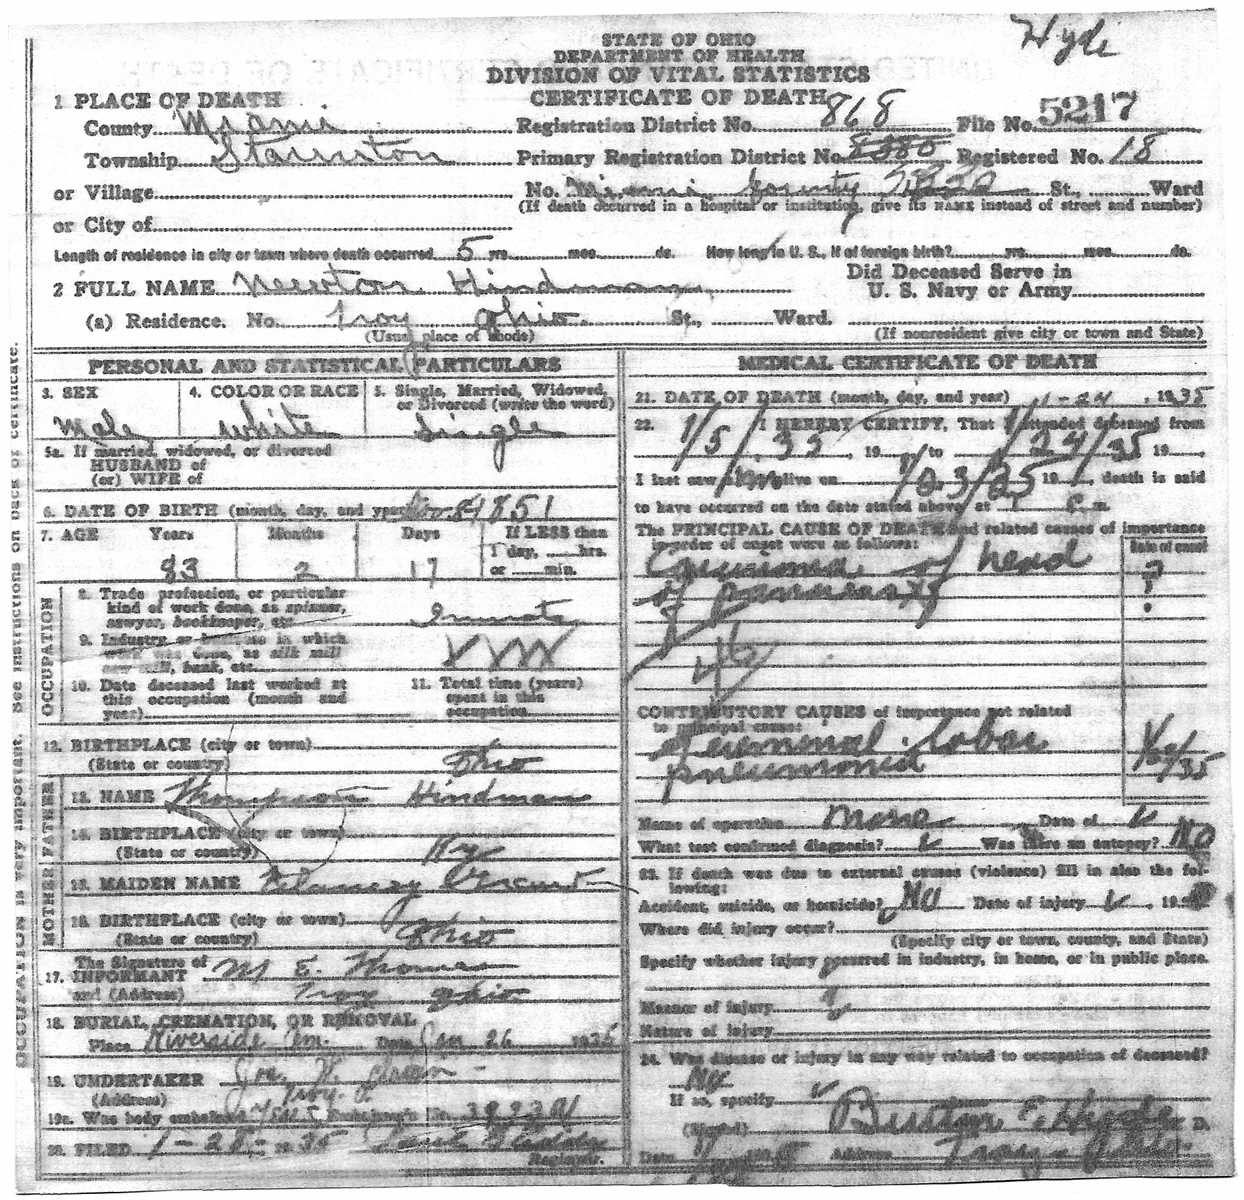 Hyde
STATE OF OHIO
DEPARTMENT OF HEALTH
DIVISION OF VITAL STATISTICS
CERTIFICATE OF DEATH
1 PLACE OF DEATH
County Miami Registration District No. 868 File No. 5217
Township Staunton Primary Registration District No. Registered No. 18
or Village No. Miami County St., Ward
(If death occurred in a hospital or institution, give its NAME instead of street and number)
or City of
Length of residence in city or town where death occurred 5 yrs. mos. ds. How long in U. S., if of foreign birth? yrs. mos. ds.
2 FULL NAME Newton Hindman Did Deceased Serve in U. S. Navy or Army
(a) Residence. No. Troy Ohio St., Ward.
(Usual place of abode) (If nonresident give city or town and State)
PERSONAL AND STATISTICAL PARTICULARS
3. SEX 4. COLOR OR RACE 5. Single, Married, Widowed, or Divorced (write the word)
Male White Single
5a. If married, widowed, or divorced
HUSBAND of
(or) WIFE of
6. DATE OF BIRTH (month, day, and year) 1851
7. AGE Years Months Days If LESS than
1 day, hrs.
83 2 17 or min.
OCCUPATION
8. Trade, profession, or particular
kind of work done, as spinner,
sawyer, bookkeeper, etc. Inmate
9. Industry or business in which
work was done, as silk mill
saw mill, bank, etc.
10. Date deceased last worked at
this occupation (month and
year)
11. Total time (years)
spent in this
occupation
12. BIRTHPLACE (city or town)
(State or country) Ohio
FATHER
13. NAME Thompson Hindman
14. BIRTHPLACE (city or town)
(State or country) Ky
MOTHER
15. MAIDEN NAME
16. BIRTHPLACE (city or town)
(State or country) Ohio
17. The Signature of
INFORMANT M E. Thomas
and (Address) Troy Ohio
18. BURIAL, CREMATION, OR REMOVAL
Place Riverside Cem. Date Jan 26 1935
19. UNDERTAKER
(Address) Troy, O.
19a. Was body embalmed Yes Embalmer's Lic.
20. FILED 1-28- 1935
Registrar.
OCCUPATION is very important. See instructions on back of certificate.
MEDICAL CERTIFICATE OF DEATH
21. DATE OF DEATH (month, day, and year) 1-24, 1935
22. I HEREBY CERTIFY, That I attended deceased from
1/5/35, 19 to 1/24/35 19,
I last saw him alive on 19, death is said
to have occurred on the date stated above, at m.
The PRINCIPAL CAUSE OF DEATH and related causes of importance
in order of onset were as follows: Date of onset
Carcinoma of head ?
of pancreas
46
CONTRIBUTORY CAUSES of importance not related
to principal cause:
Terminal lobar
pneumonia
Name of operation None Date of
What test confirmed diagnosis? Was there an autopsy? No
23. If death was due to external causes (violence) fill in also the following:
Accident, suicide, or homicide? No Date of injury 19
Where did injury occur?
(Specify city or town, county, and State)
Specify whether injury occurred in industry, in home, or in public place.
Manner of injury
Nature of injury
24. Was disease or injury in any way related to occupation of deceased?
No
If so, specify
(Signed) Hyde D.
Date Address Troy, Ohio